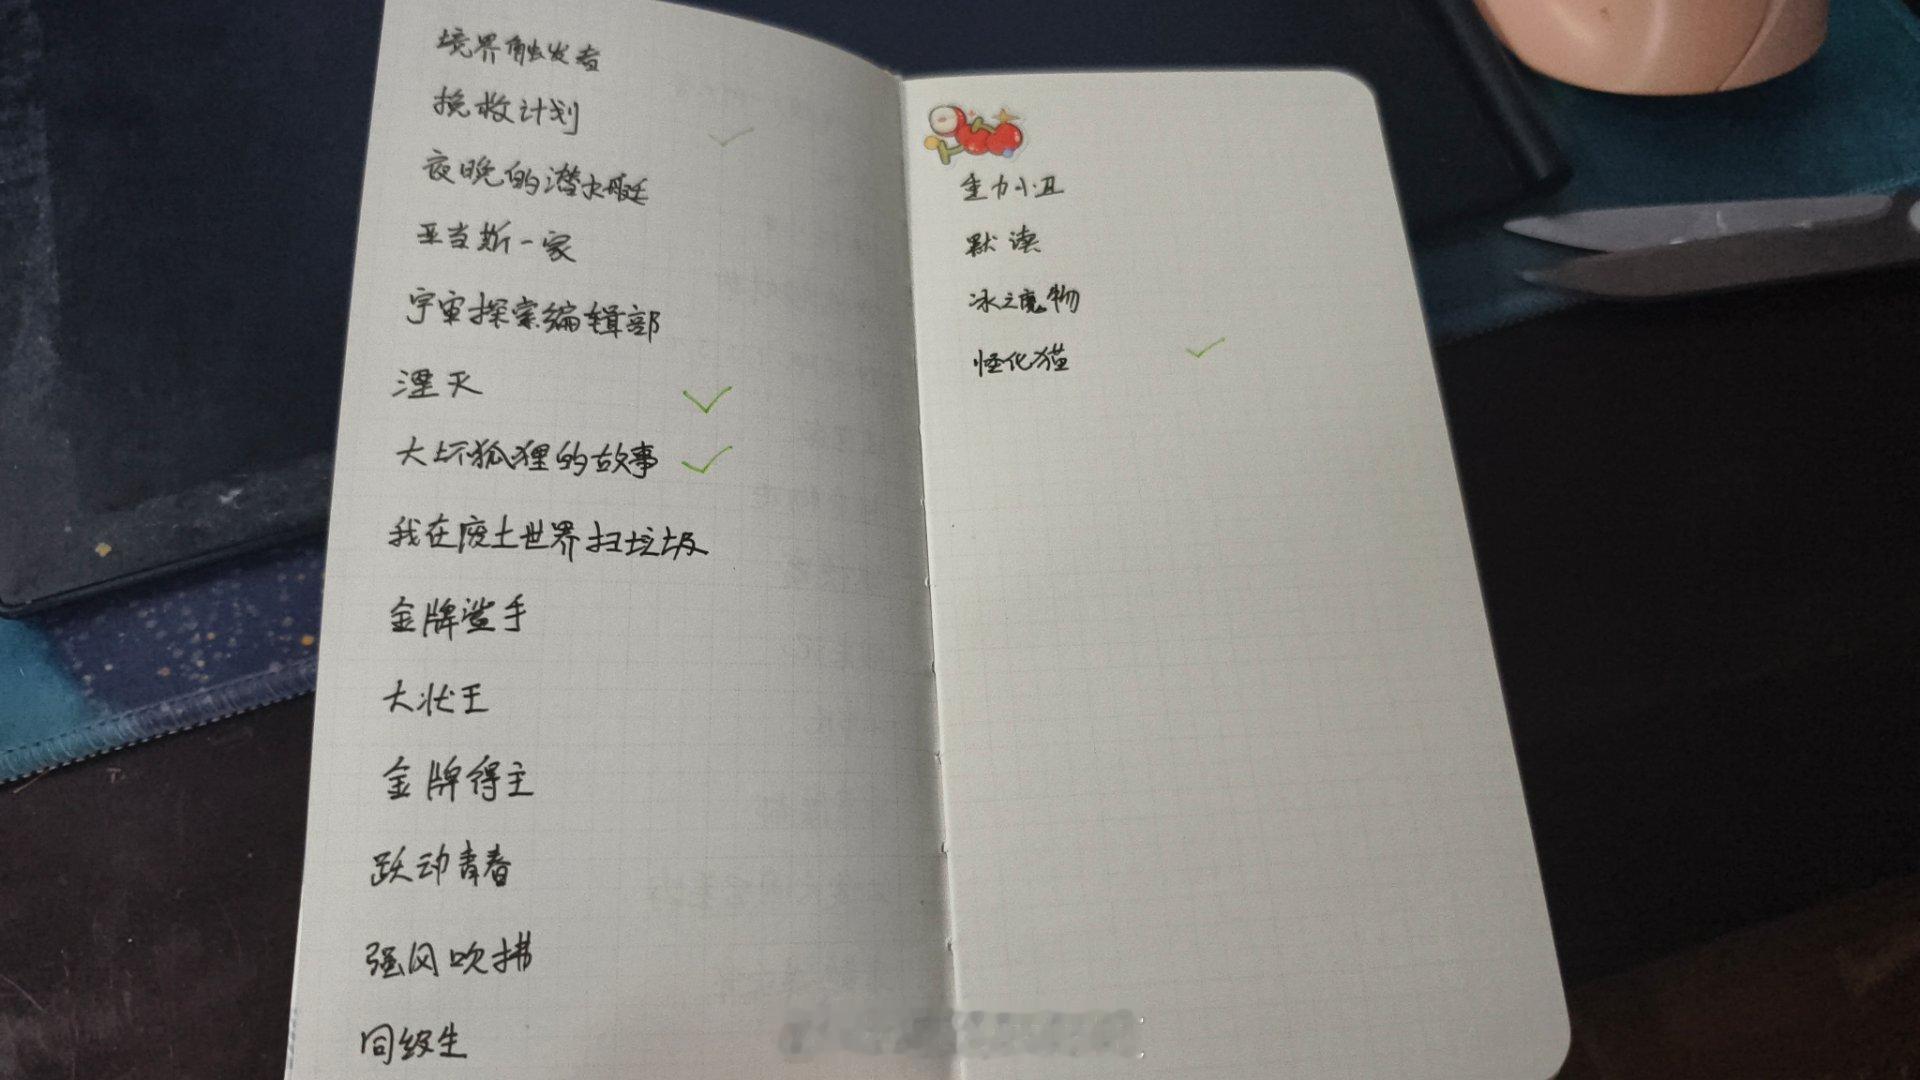 境界触发者
挽救计划
夜晚的潜水艇
亚当斯一家
宇宙探索编辑部
湮灭
大坏狐狸的故事
我在废土世界扫垃圾
金牌鲨手
大状王
金牌得主
跃动青春
强风吹拂
同级生
重力小丑
默读
冰之魔物
怪化猫